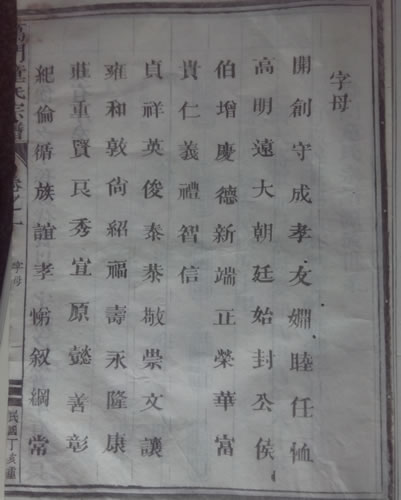 字母
開創守成孝友婣睦任恤
高明遠大朝廷始封公侯
伯增慶德新端正榮華富
貴仁義禮智信
貞祥英俊泰恭敬崇文讓
雍和敦尚紹福壽永隆康
莊重賢良秀宜原懿善彰
紀倫循族誼孝悌叙綱常
氏宗譜
卷之一
字母
民國丁亥重